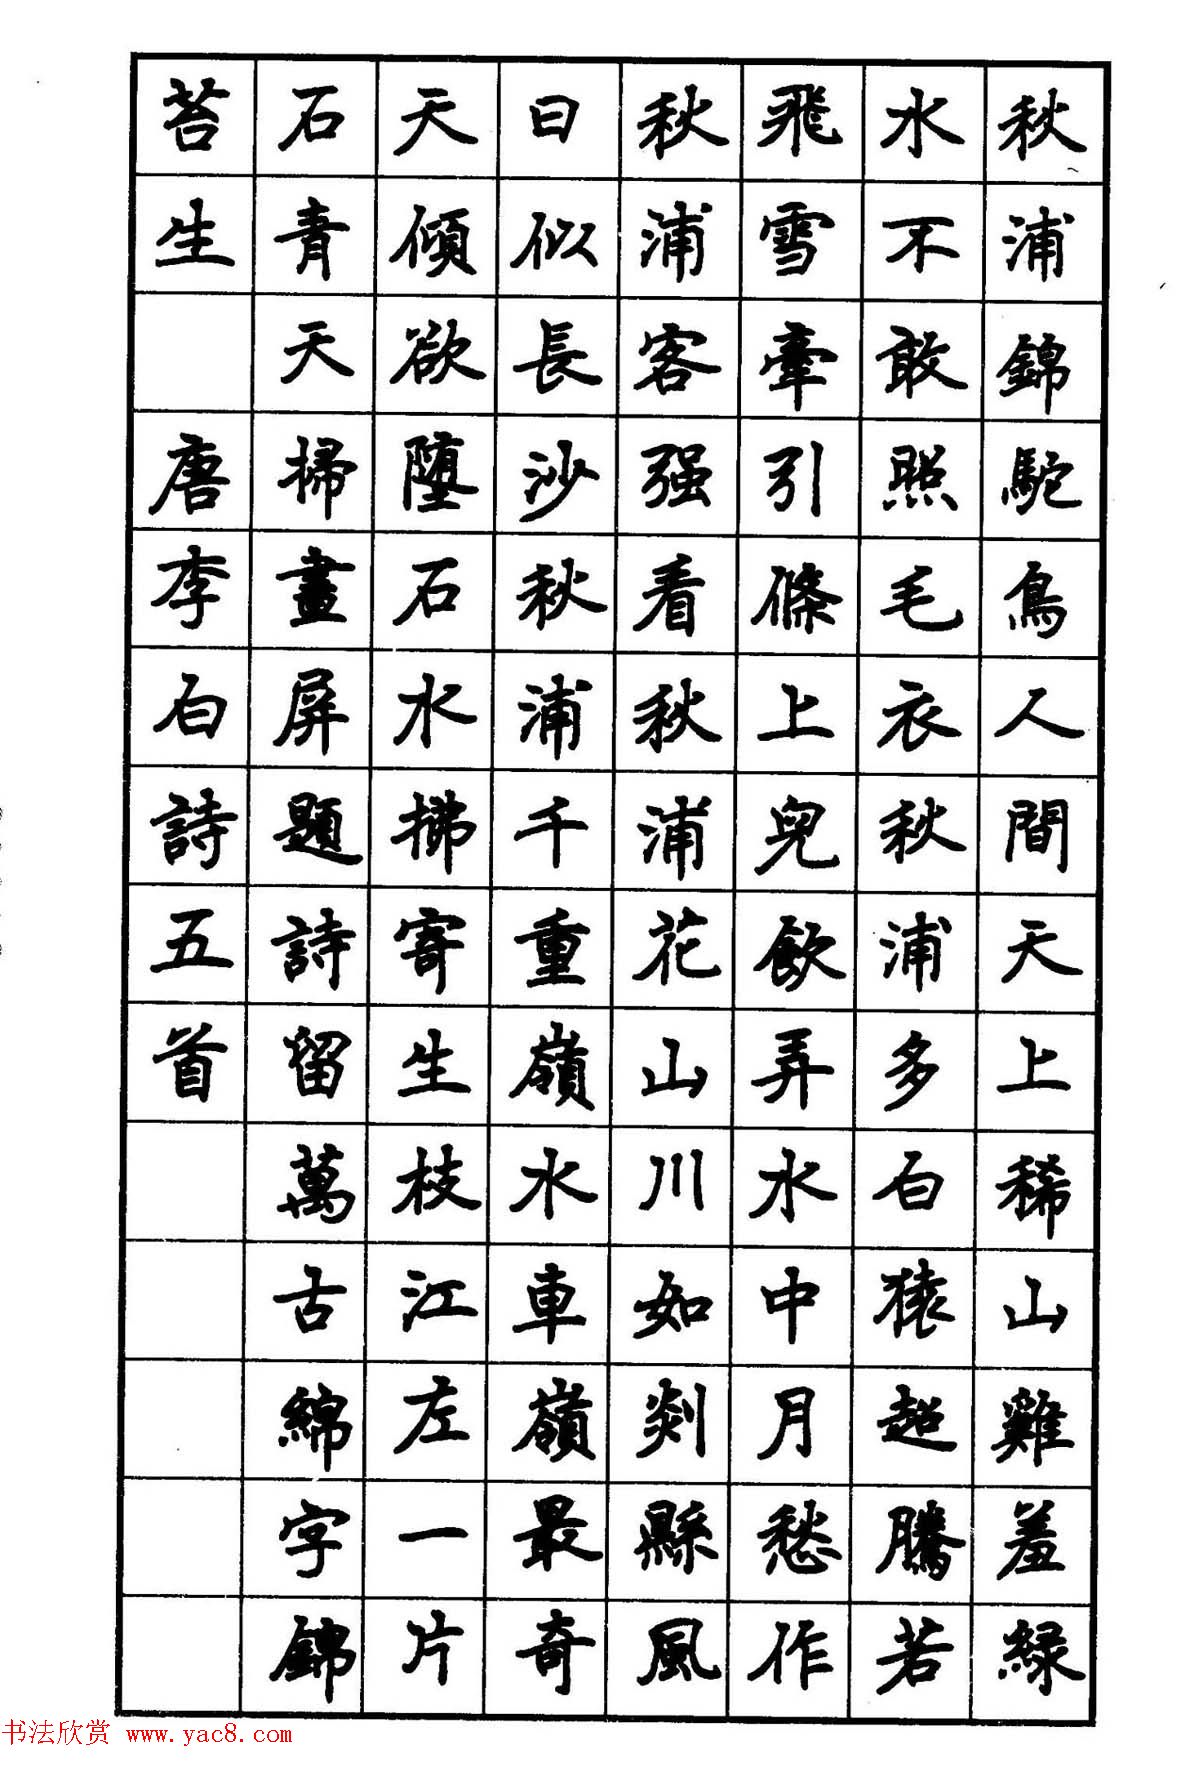 秋浦錦駝鳥人間天上稀山雞羞緑
水不敢照毛衣秋浦多白猿超騰若
飛雪牽引條上兒飲弄水中月愁作
秋浦客强看秋浦花山川如剡縣風
日似長沙秋浦千重嶺水車嶺最奇
天傾欲墮石水拂寄生枝江左一片
石青天掃畫屏題詩留萬古綿字錦
苔生 唐李白詩五首
书法欣赏 www.yac8.com